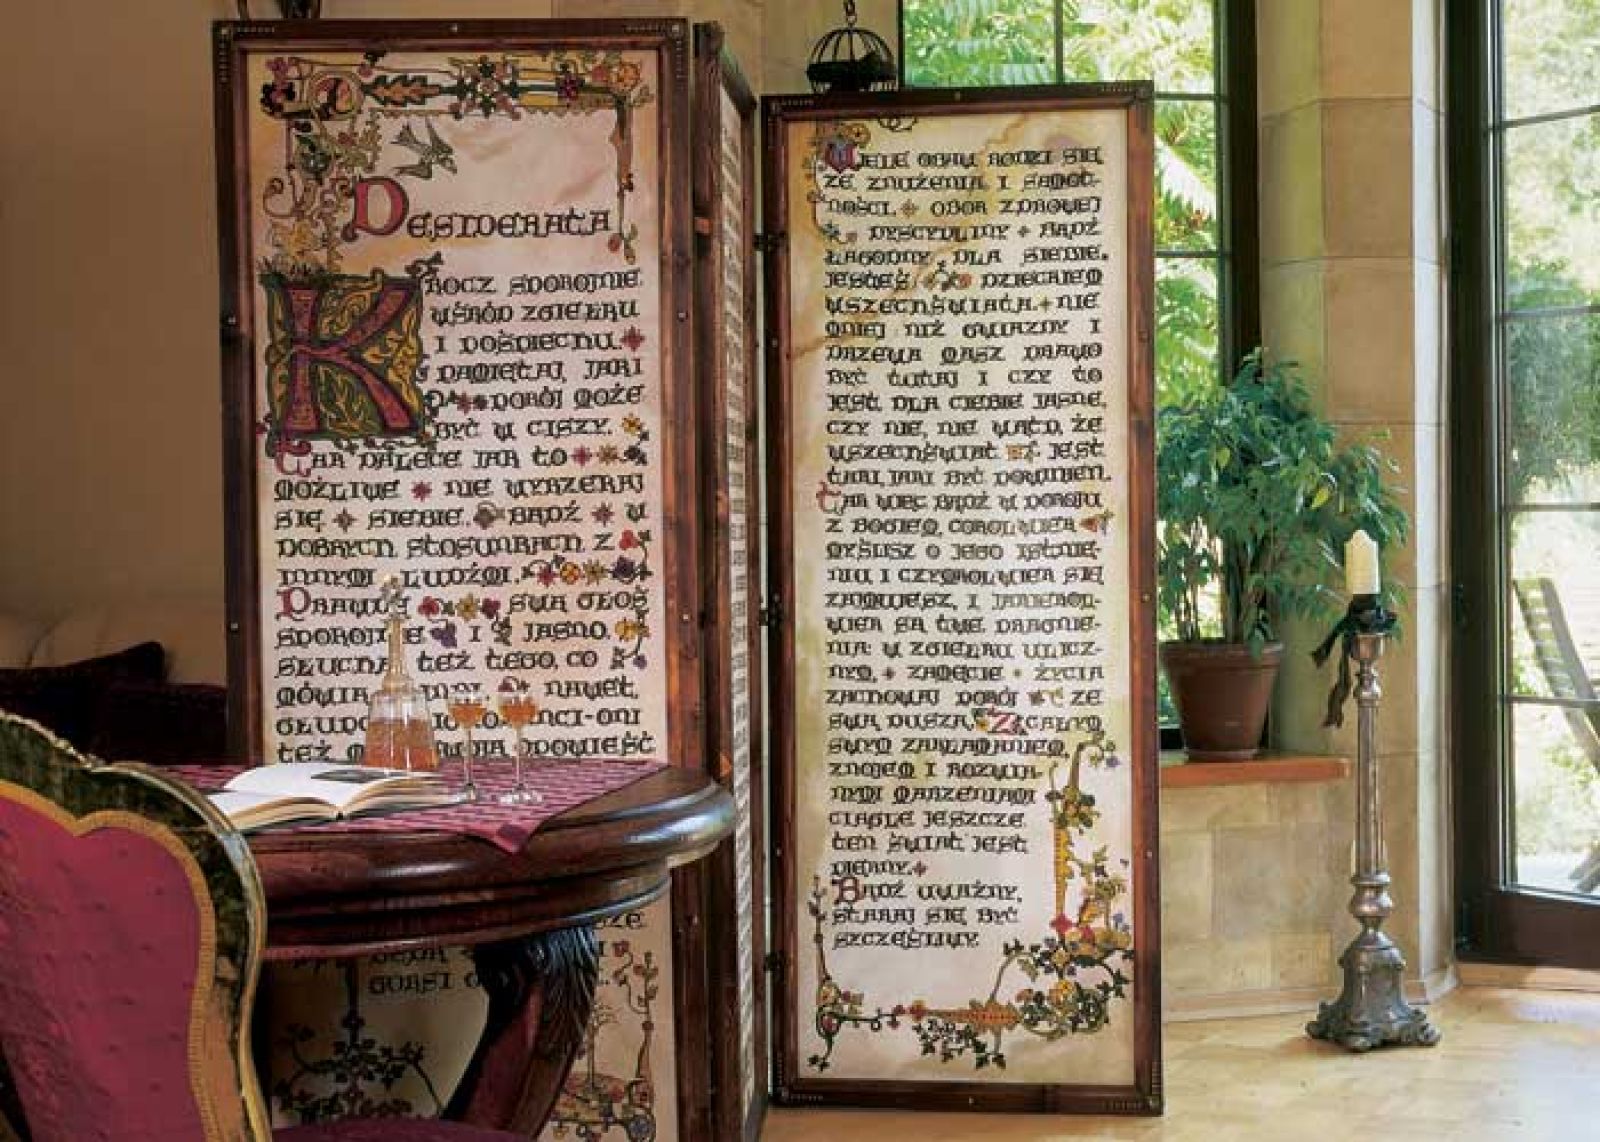 DESIDERATA
KROCZ SPOKOJNIE
WŚRÓD ZGIEŁKU
I POŚPIECHU
PAMIĘTAJ, JAKI
POKÓJ MOŻE
BYĆ W CISZY.
TAK DALECE JAK TO
MOŻLIWE NIE WYRZEKAJ
SIĘ SIEBIE. BĄDŹ W
DOBRYCH STOSUNKACH Z
INNYMI LUDŹMI.
PRAWDĘ SWĄ GŁOŚ
SPOKOJNIE I JASNO.
SŁUCHAJ TEŻ TEGO, CO
MÓWIĄ INNI. NAWET
GŁUPCY I IGNORANCI-ONI
TEŻ MAJĄ SWOJĄ OPOWIEŚĆ
WIELE OBAW RODZI SIĘ
ZE ZNUŻENIA I SAMOT-
NOŚCI. OBOK ZDROWEJ
DYSCYPLINY BĄDŹ
ŁAGODNY DLA SIEBIE.
JESTEŚ DZIECKIEM
WSZECHŚWIATA. NIE
MNIEJ NIŻ GWIAZDY I
DRZEWA MASZ PRAWO
BYĆ TUTAJ I CZY TO
JEST DLA CIEBIE JASNE,
CZY NIE, NIE WĄTP, ŻE
WSZECHŚWIAT JEST
TAKI, JAKI BYĆ POWINIEN.
TAK WIĘC BĄDŹ W POKOJU
Z BOGIEM, COKOLWIEK
MYŚLISZ O JEGO ISTNIE-
NIU, I CZYMKOLWIEK SIĘ
ZAJMUJESZ, I JAKIEKOL-
WIEK SĄ TWE PRAGNIE-
NIA: W ZGIEŁKU ULICZ-
NYM, ZAMĘCIE ŻYCIA
ZACHOWAJ POKÓJ ZE
SWĄ DUSZĄ. Z CAŁYM
SWYM ZAKŁAMANIEM,
ZNOJEM I ROZWIA-
NYMI MARZENIAMI
CIĄGLE JESZCZE
TEN ŚWIAT JEST
PIĘKNY.
BĄDŹ UWAŻNY,
STARAJ SIĘ BYĆ
SZCZĘŚLIWY.